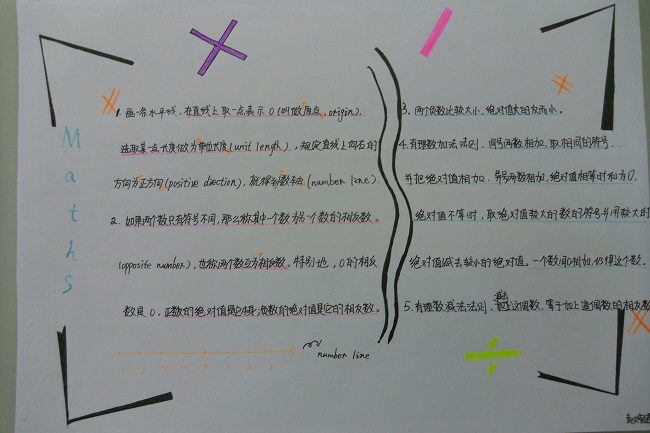 Maths
1. 画一条水平线，在直线上取一点表示0（叫做原点，origin），
选取某一点长度做为单位长度（unit length），规定直线上向右的
方向为正方向（positive direction），就得到数轴（number line）.
2. 如果两个数只有符号不同，那么称其中一个数为另一个数的相反数。
（opposite number），也称两个数互为相反数。特别地，0的相反
数是0. 正数的绝对值是它本身；负数的绝对值是它的相反数。
-3 -2 -1 0 1 2 3
number line
3. 两个负数比较大小，绝对值大的反而小。
4. 有理数加法法则，同号两数相加，取相同的符号.
并把绝对值相加. 异号两数相加，绝对值相等时和为0.
绝对值不等时，取绝对值较大的数的符号并用较大的
绝对值减去较小的绝对值。一个数同0相加，仍得这个数。
5. 有理数减法法则，这个数，等于加上这个数的相反数